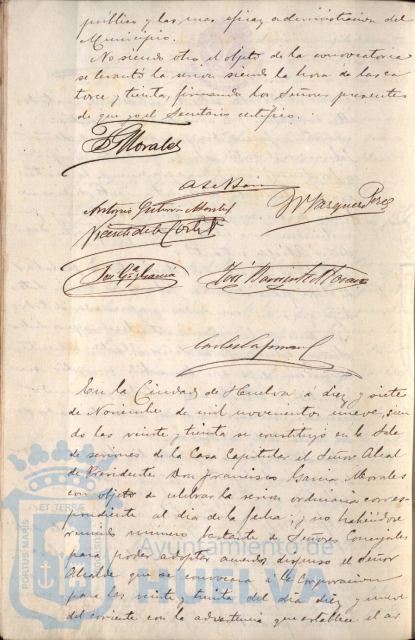 pública y las mas eficaz administracion del
Municipio.
No siendo otro el objeto de la convocatoria
se levantó la sesion siendo la hora de las ca
torce y treinta, firmando los Señores presentes
de que yo el Secretario certifico.
F. G. Morales
M Vazquez Perez
Antonio Gutierrez
Vicente de la Corte
José Barrigon
En la Ciudad de Huelva, á diez y siete
de Noviembre de mil novecientos nueve, sien
do las veinte y treinta se constituyó en la Sala
de sesiones de la Casa Capitular el Señor Alcal
de Presidente Don Francisco Garcia Morales
con objeto de celebrar la sesion ordinaria corres
pondiente al dia de la fecha, y no habiéndose
reunido numero bastante de Señores Concejales
para poder adoptar acuerdos dispuso el Señor
Alcalde que se convocara á la Corporacion
para las veinte y treinta del dia diez y nueve
del corriente con la advertencia que establece el ar
PORTUS MARIS
ET TERRAE
Ayuntamiento de
HUELVA